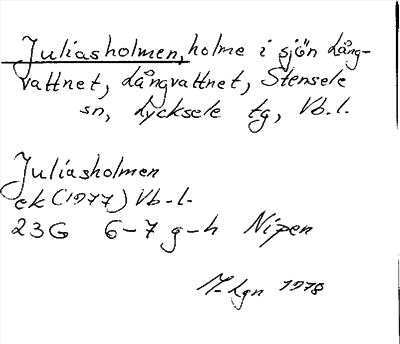 Juliasholmen, holme i sjön Lång-
vattnet, Långvattnet, Stensele
sn, Lycksele tg, Vb. l.
Juliasholmen
ek (1977) Vb-l-
23G 6-7 g-h Nipen
M-Lgn 1978